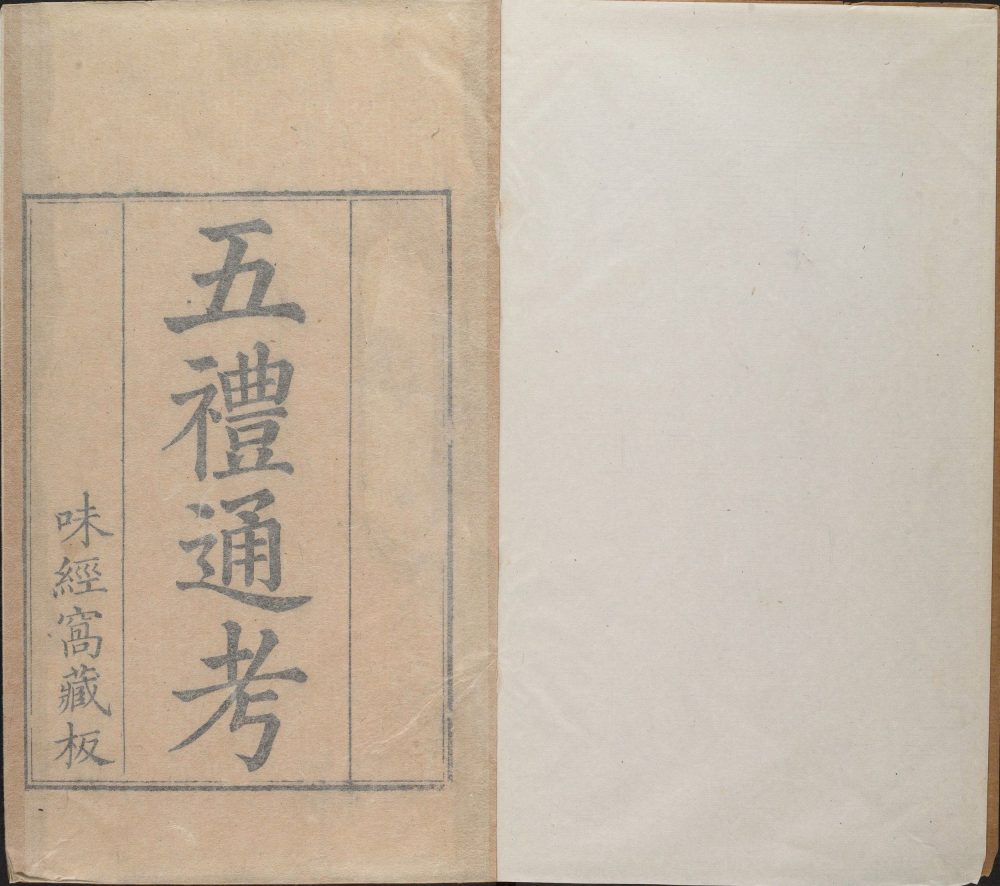 五禮通考
味經窩藏板